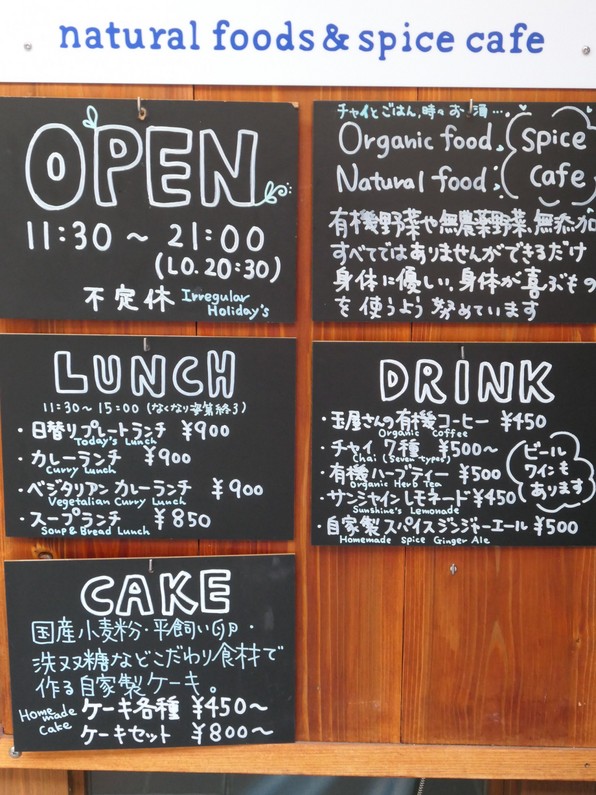 natural foods & spice cafe
OPEN
11:30 ~ 21:00
(LO. 20:30)
不定休 Irregular
Holiday's
チャイとごはん,時々お酒…
Organic food,
Natural food:
Spice
cafe
有機野菜や無農薬野菜、無添加
すべてではありませんができるだけ
身体に優しい,身体が喜ぶもの
を使うよう努めています
LUNCH
11:30~15:00 (なくなり次第終了)
・日替りプレートランチ ¥900
Today's Lunch
・カレーランチ ¥900
Curry Lunch
・ベジタリアンカレーランチ ¥900
Vegetalian Curry Lunch
・スープランチ ¥850
Soup & Bread Lunch
DRINK
・玉屋さんの有機コーヒー ¥450
Organic Coffee
・チャイ 7種 ¥500~
Chai (Seven types)
・有機ハーブティー ¥500
Organic Herb Tea
・サンシャインレモネード ¥450
Sunshine's Lemonade
・自家製スパイスジンジャーエール ¥500
Homemade Spice Ginger Ale
ビール
ワインも
あります
CAKE
国産小麦粉・平飼い卵・
洗双糖などこだわり食材で
作る自家製ケーキ。
Home made Cake
ケーキ各種 ¥450~
ケーキセット ¥800~